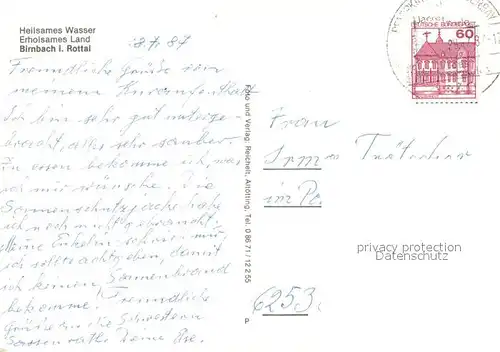 Heilsames Wasser
Erholsames Land
Birnbach i. Rottal
8.7.87
Freundliche Grüße von
meinem Kuraufenthalt
Ich bin sehr gut unterge-
bracht, alles sehr sauber.
Zu essen bekomme ich, was
ich mir wünsche. Die
Sonnenschutz habe
ich noch nicht gebraucht.
Meine Enkelin schrieb mir
ich sollte achtgeben, damit
ich keinen Sonnenbrand
bekomme. Freundliche
Grüße an die Schwestern
deine
Foto und Verlag: Reichelt, Altötting, Tel. 0 86 71 / 12 2 55
P
DEUTSCHE BUNDESPOST
60
Frau
Irm
im
6253
privacy protection
Datenschutz